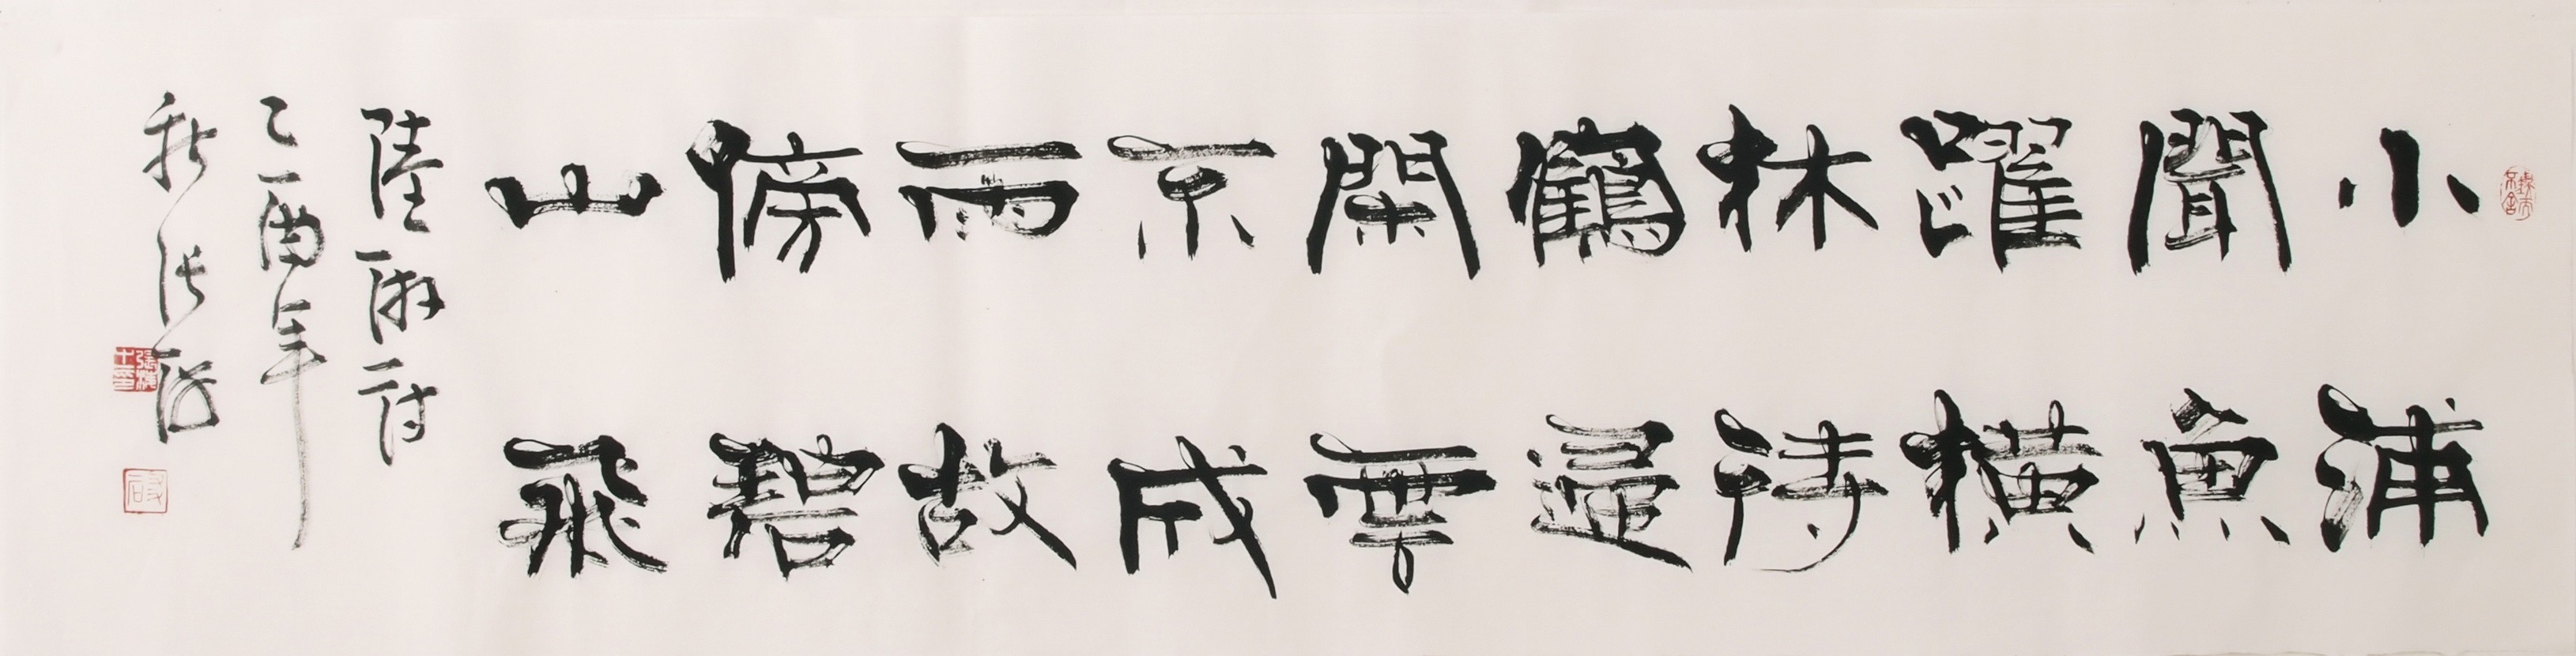 小浦
聞魚
躍橫
林待
鶴歸
閑雲
不成
雨故
傍碧
山飛
陸游詩
乙酉年
秋張